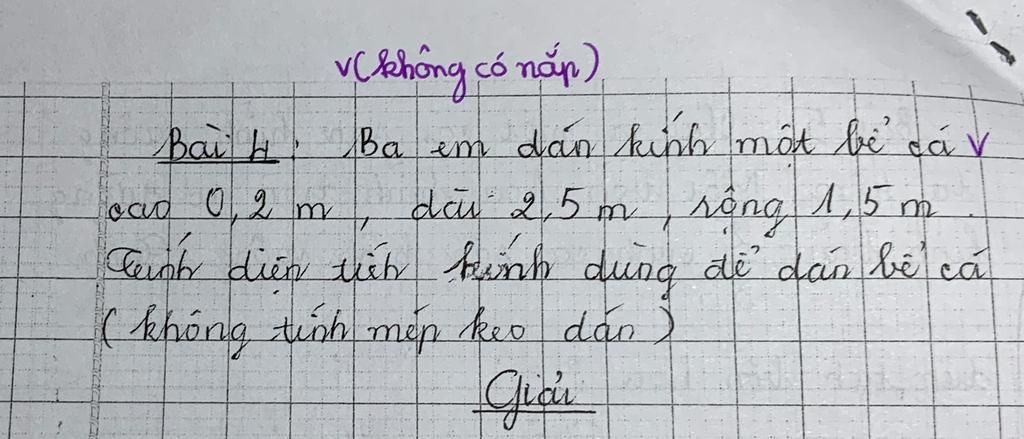 v(không có nắp)
Bài 4: Ba em dán kính một bể cá v
cao 0,2 m, dài 2,5 m, rộng 1,5 m.
Tính diện tích kính dùng để dán bể cá
(không tính mép keo dán)
Giải